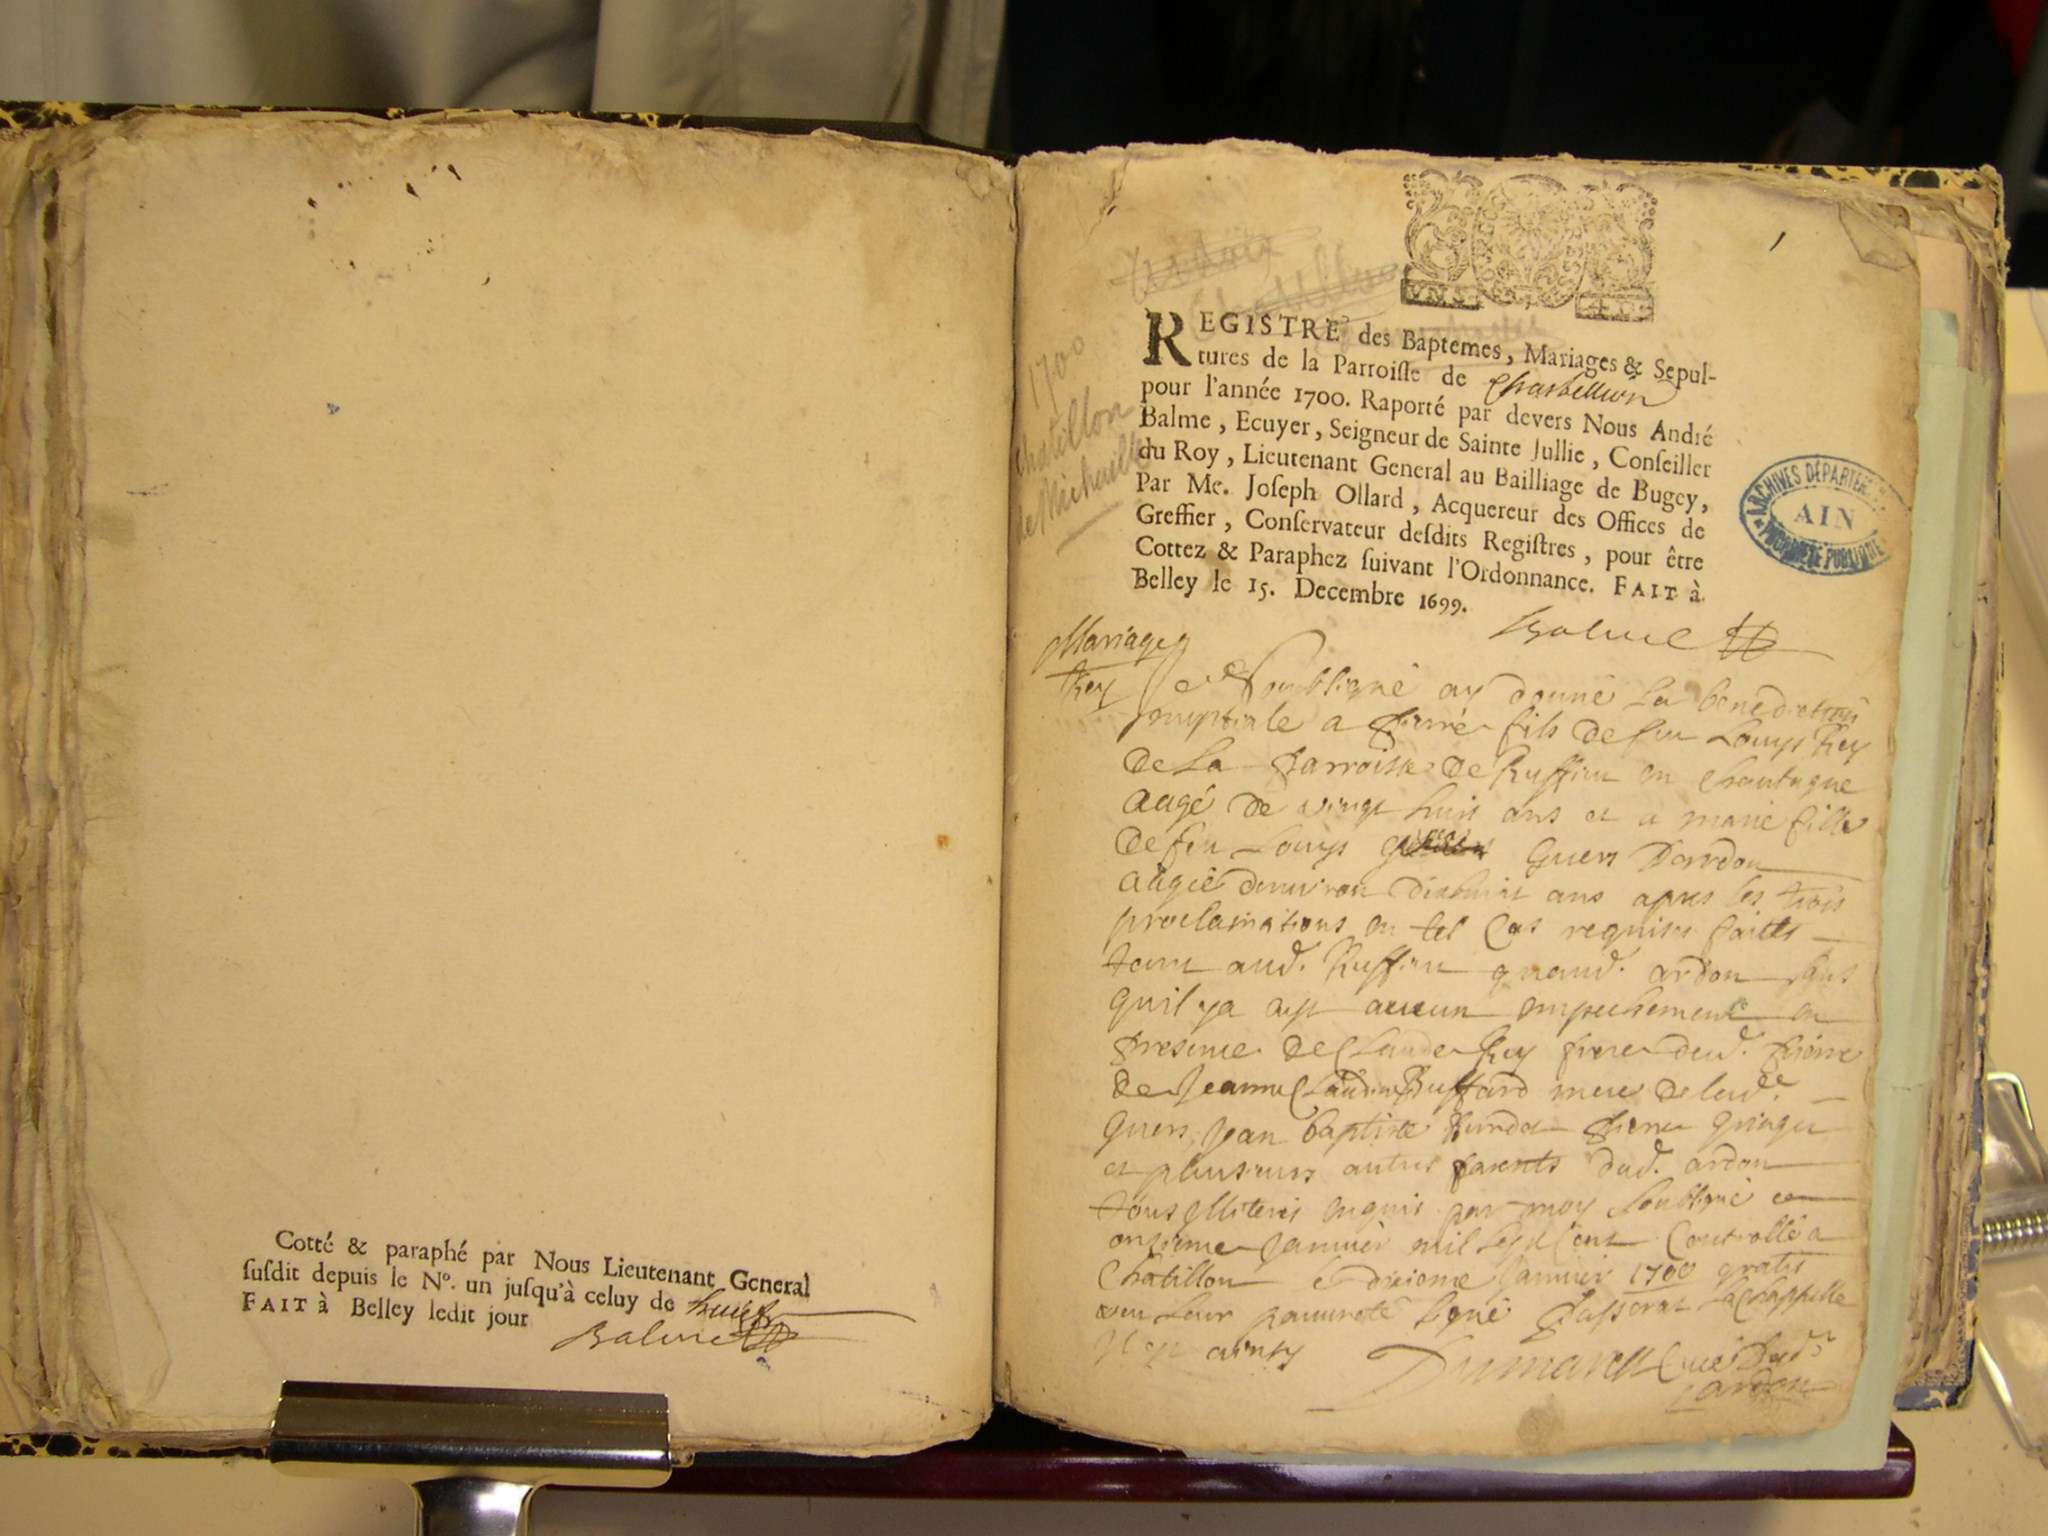 Cotté & paraphé par Nous Lieutenant General
susdit depuis le Nº. un jusqu'à celuy de huict
FAIT à Belley ledit jour
Balme
1700
chatillon
de Michaille
REGISTRE des Baptemes, Mariages & Sepul-
tures de la Parroisse de Chastillion
pour l'année 1700. Raporté par devers Nous André
Balme, Ecuyer, Seigneur de Sainte Jullie, Conseiller
du Roy, Lieutenant General au Bailliage de Bugey,
Par Me. Joseph Ollard, Acquereur des Offices de
Greffier, Conservateur desdits Registres, pour être
Cottez & Paraphez suivant l'Ordonnance. FAIT à
Belley le 15. Decembre 1699.
Balme
ARCHIVES DÉPARTEM
AIN
Mariage
Rey
Je Soubsigné ay donné la benediction
nuptiale a pierre fils de feu Louys Rey
de la parroisse de Ruffieu en Chautagne
aagé de vingt huit ans et a marie fille
de feu Louys Guers Dardon
aagée denviron dixhuit ans apres les trois
proclamations en tel Cas requises faittes
tant aud. Ruffieu quaud. ardon sans
quil ya ayt aucun empechement en
presence de Claude Rey frere dud. pierre
de Jeanne Claudine Buffard mere de lad.e
Guers, Jean baptiste pierre
et plusieurs autres parents dud. ardon
tous illiterés enquis par moy soubsigné ce
onzieme Janvier mil sept Cent Controllé a
Chatillon le Janvier 1700 gratis
veu leur pauvreté signé passerat La Chappelle
ainsy Dumarest Curé dud.
ardon